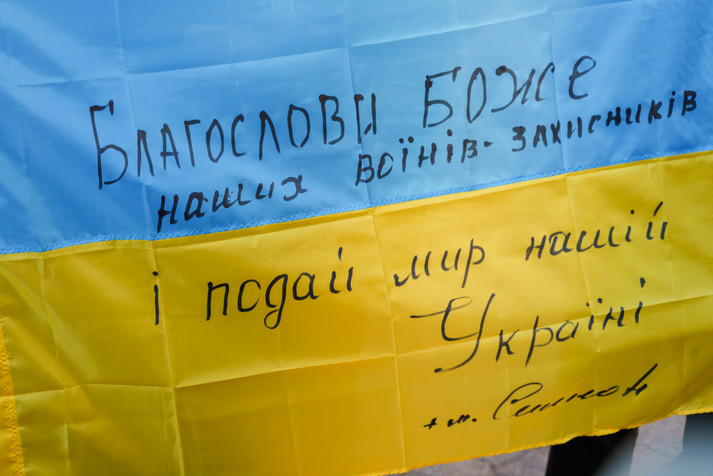 Благослови Боже
наших воїнів-захисників
і подай мир нашій
Україні
+ м.